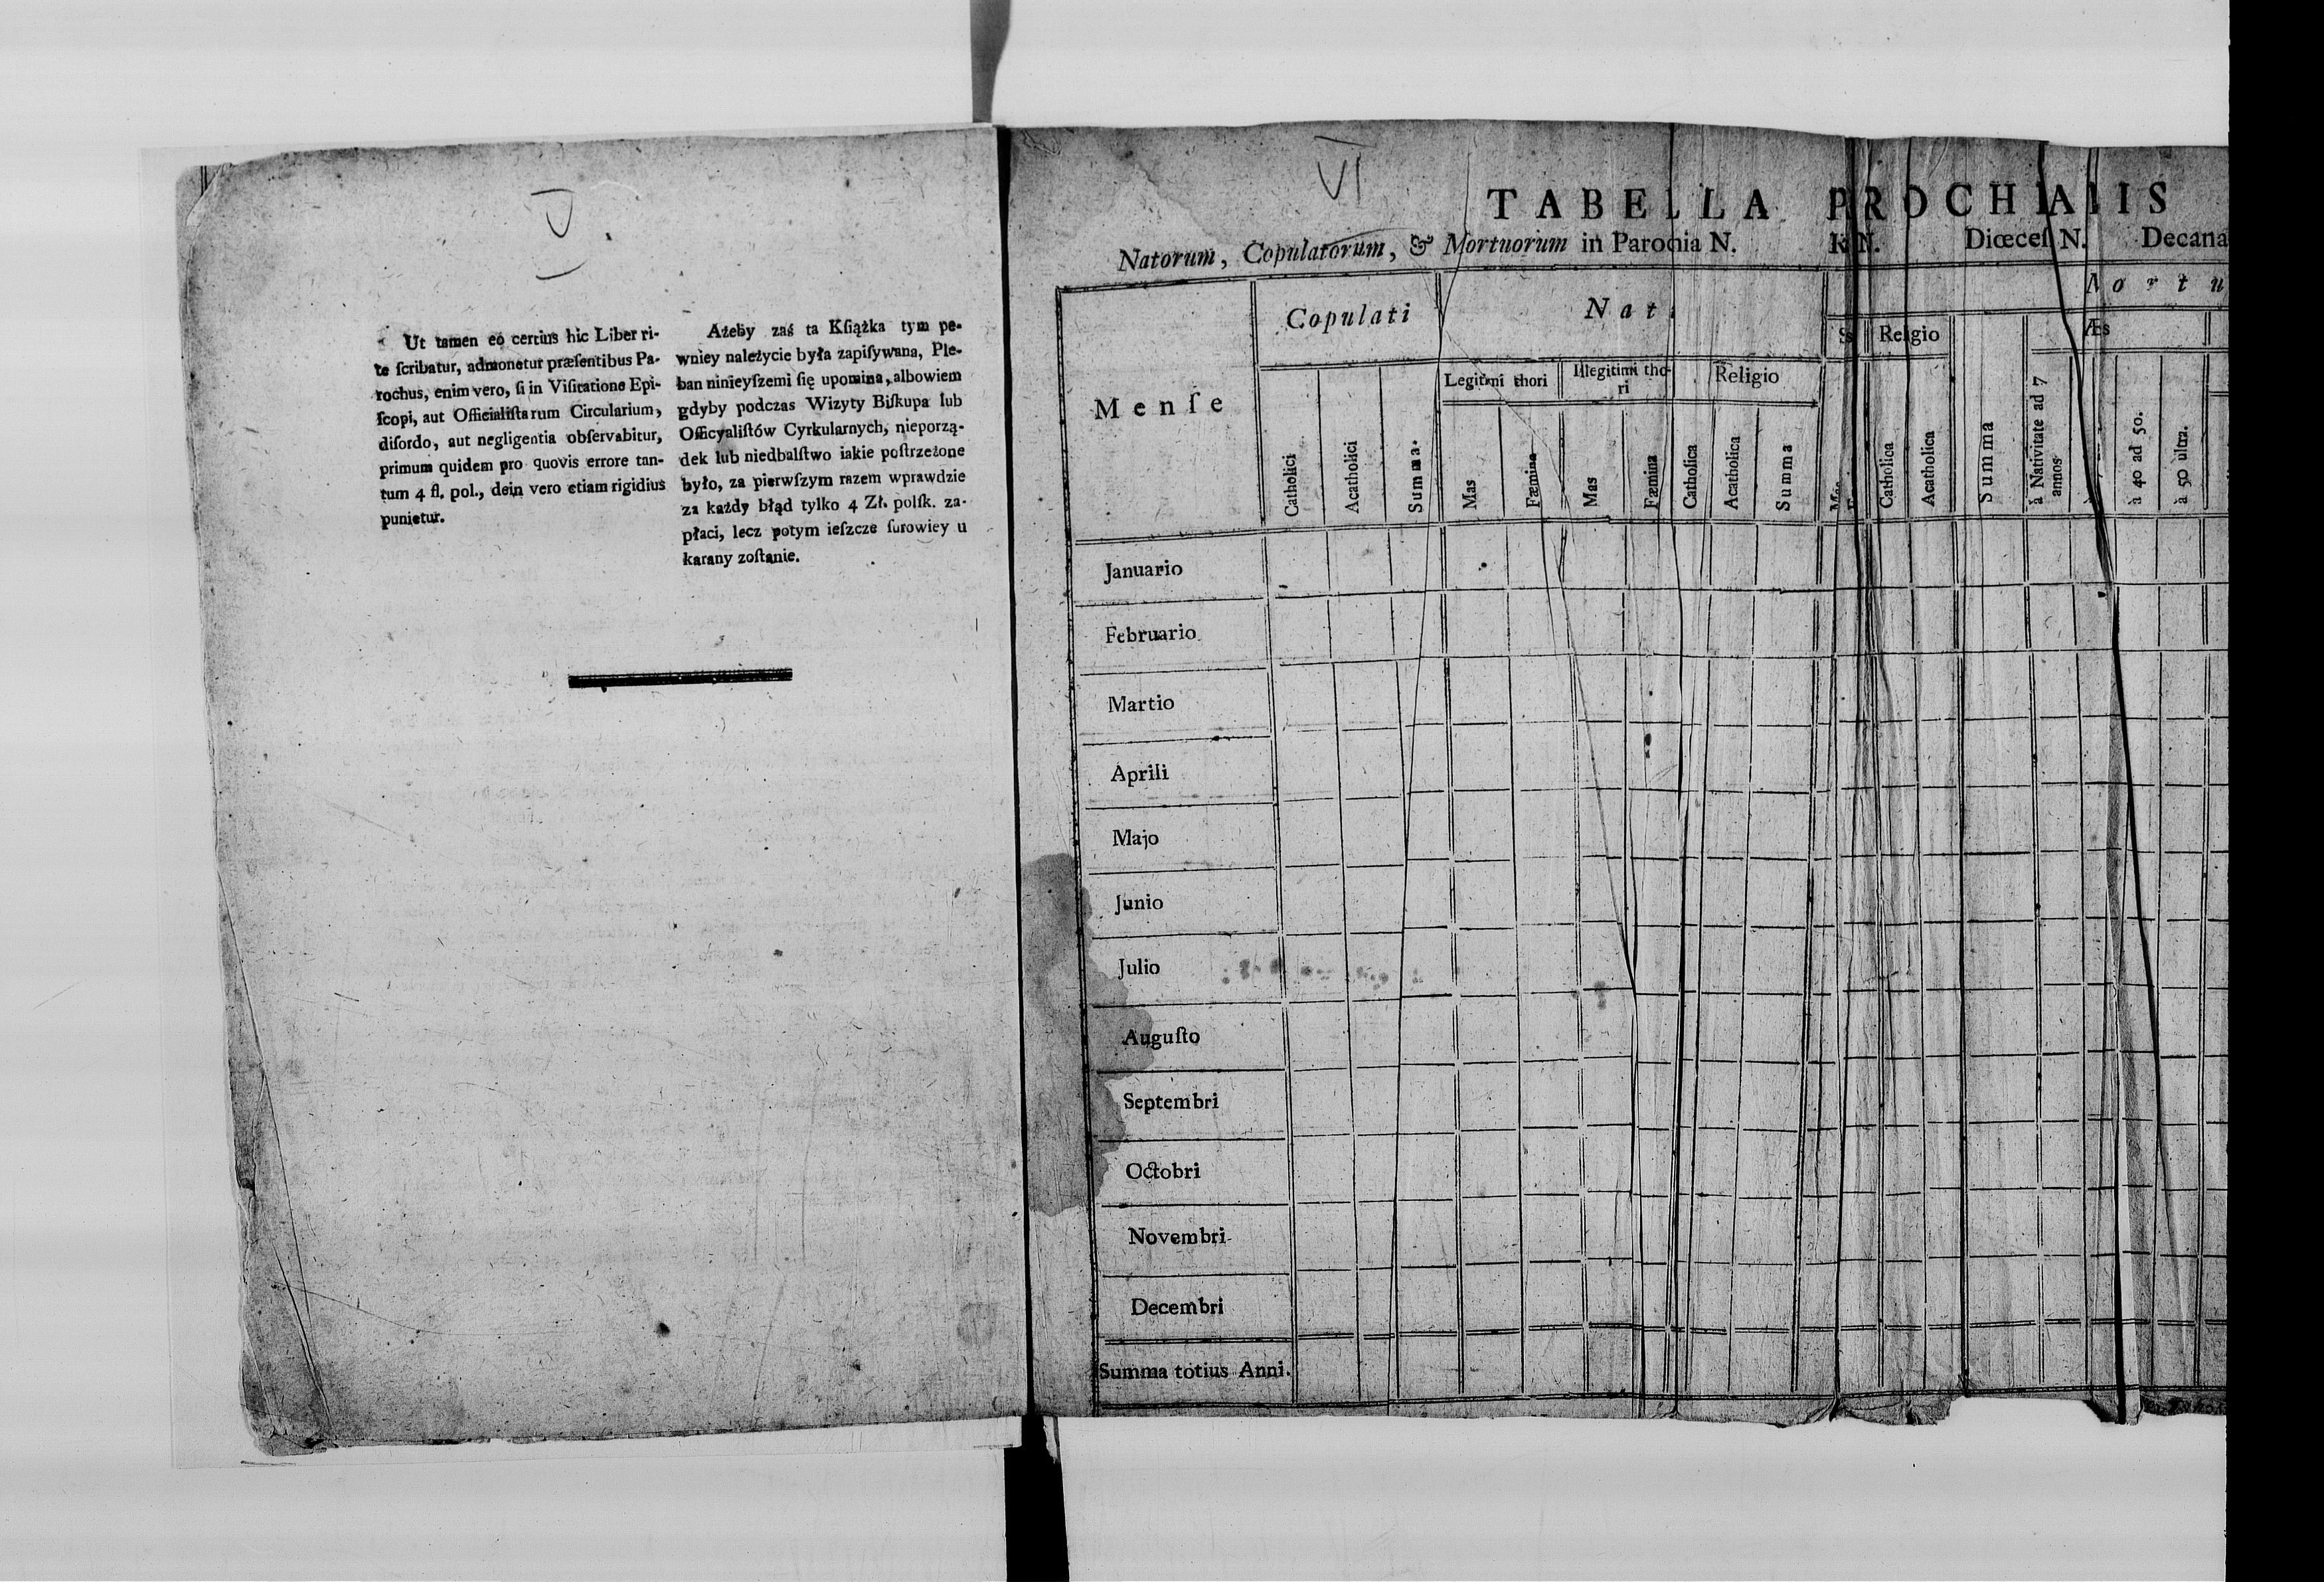 V
Ut tamen eo certius hic Liber ri-
te ſcribatur, admonetur præſentibus Pa-
rochus, enim vero, ſi in Viſitatione Epi-
ſcopi, aut Officialiſtarum Circularium,
diſordo, aut negligentia obſervabitur,
primum quidem pro quovis errore tan-
tum 4 fl. pol., dein vero etiam rigidius
punietur.
Ażeby zaś ta Kſiążka tym pe-
wniey należycie była zapiſywana, Ple-
ban ninieyſzemi ſię upomina, albowiem
gdyby podczas Wizyty Biſkupa lub
Officyaliſtów Cyrkularnych, nieporzą-
dek lub niedbalſtwo iakie poſtrzeżone
było, za pierwſzym razem wprawdzie
za każdy błąd tylko 4 Zł. polſk. za-
płaci, lecz potym ieſzcze ſurowiey u
karany zoſtanie.
VI
TABELLA PROCHIALIS
Natorum, Copulatorum, & Mortuorum in Parochia N. N. Diœceſ N. Decana
Menſe
Copulati
Nati
Mortu
Legitimi thori
Illegitimi tho-
ri
Religio
Religio
Catholici
Acatholici
Summa.
Mas
Fæmina
Mas
Fæmina
Catholica
Acatholica
Summa
Mas
Catholica
Acatholica
Summa
à Nativitate ad 7
annos
à 40 ad 50.
à 50 ultra.
Januario
Februario
Martio
Aprili
Majo
Junio
Julio
Auguſto
Septembri
Octobri
Novembri
Decembri
Summa totius Anni.